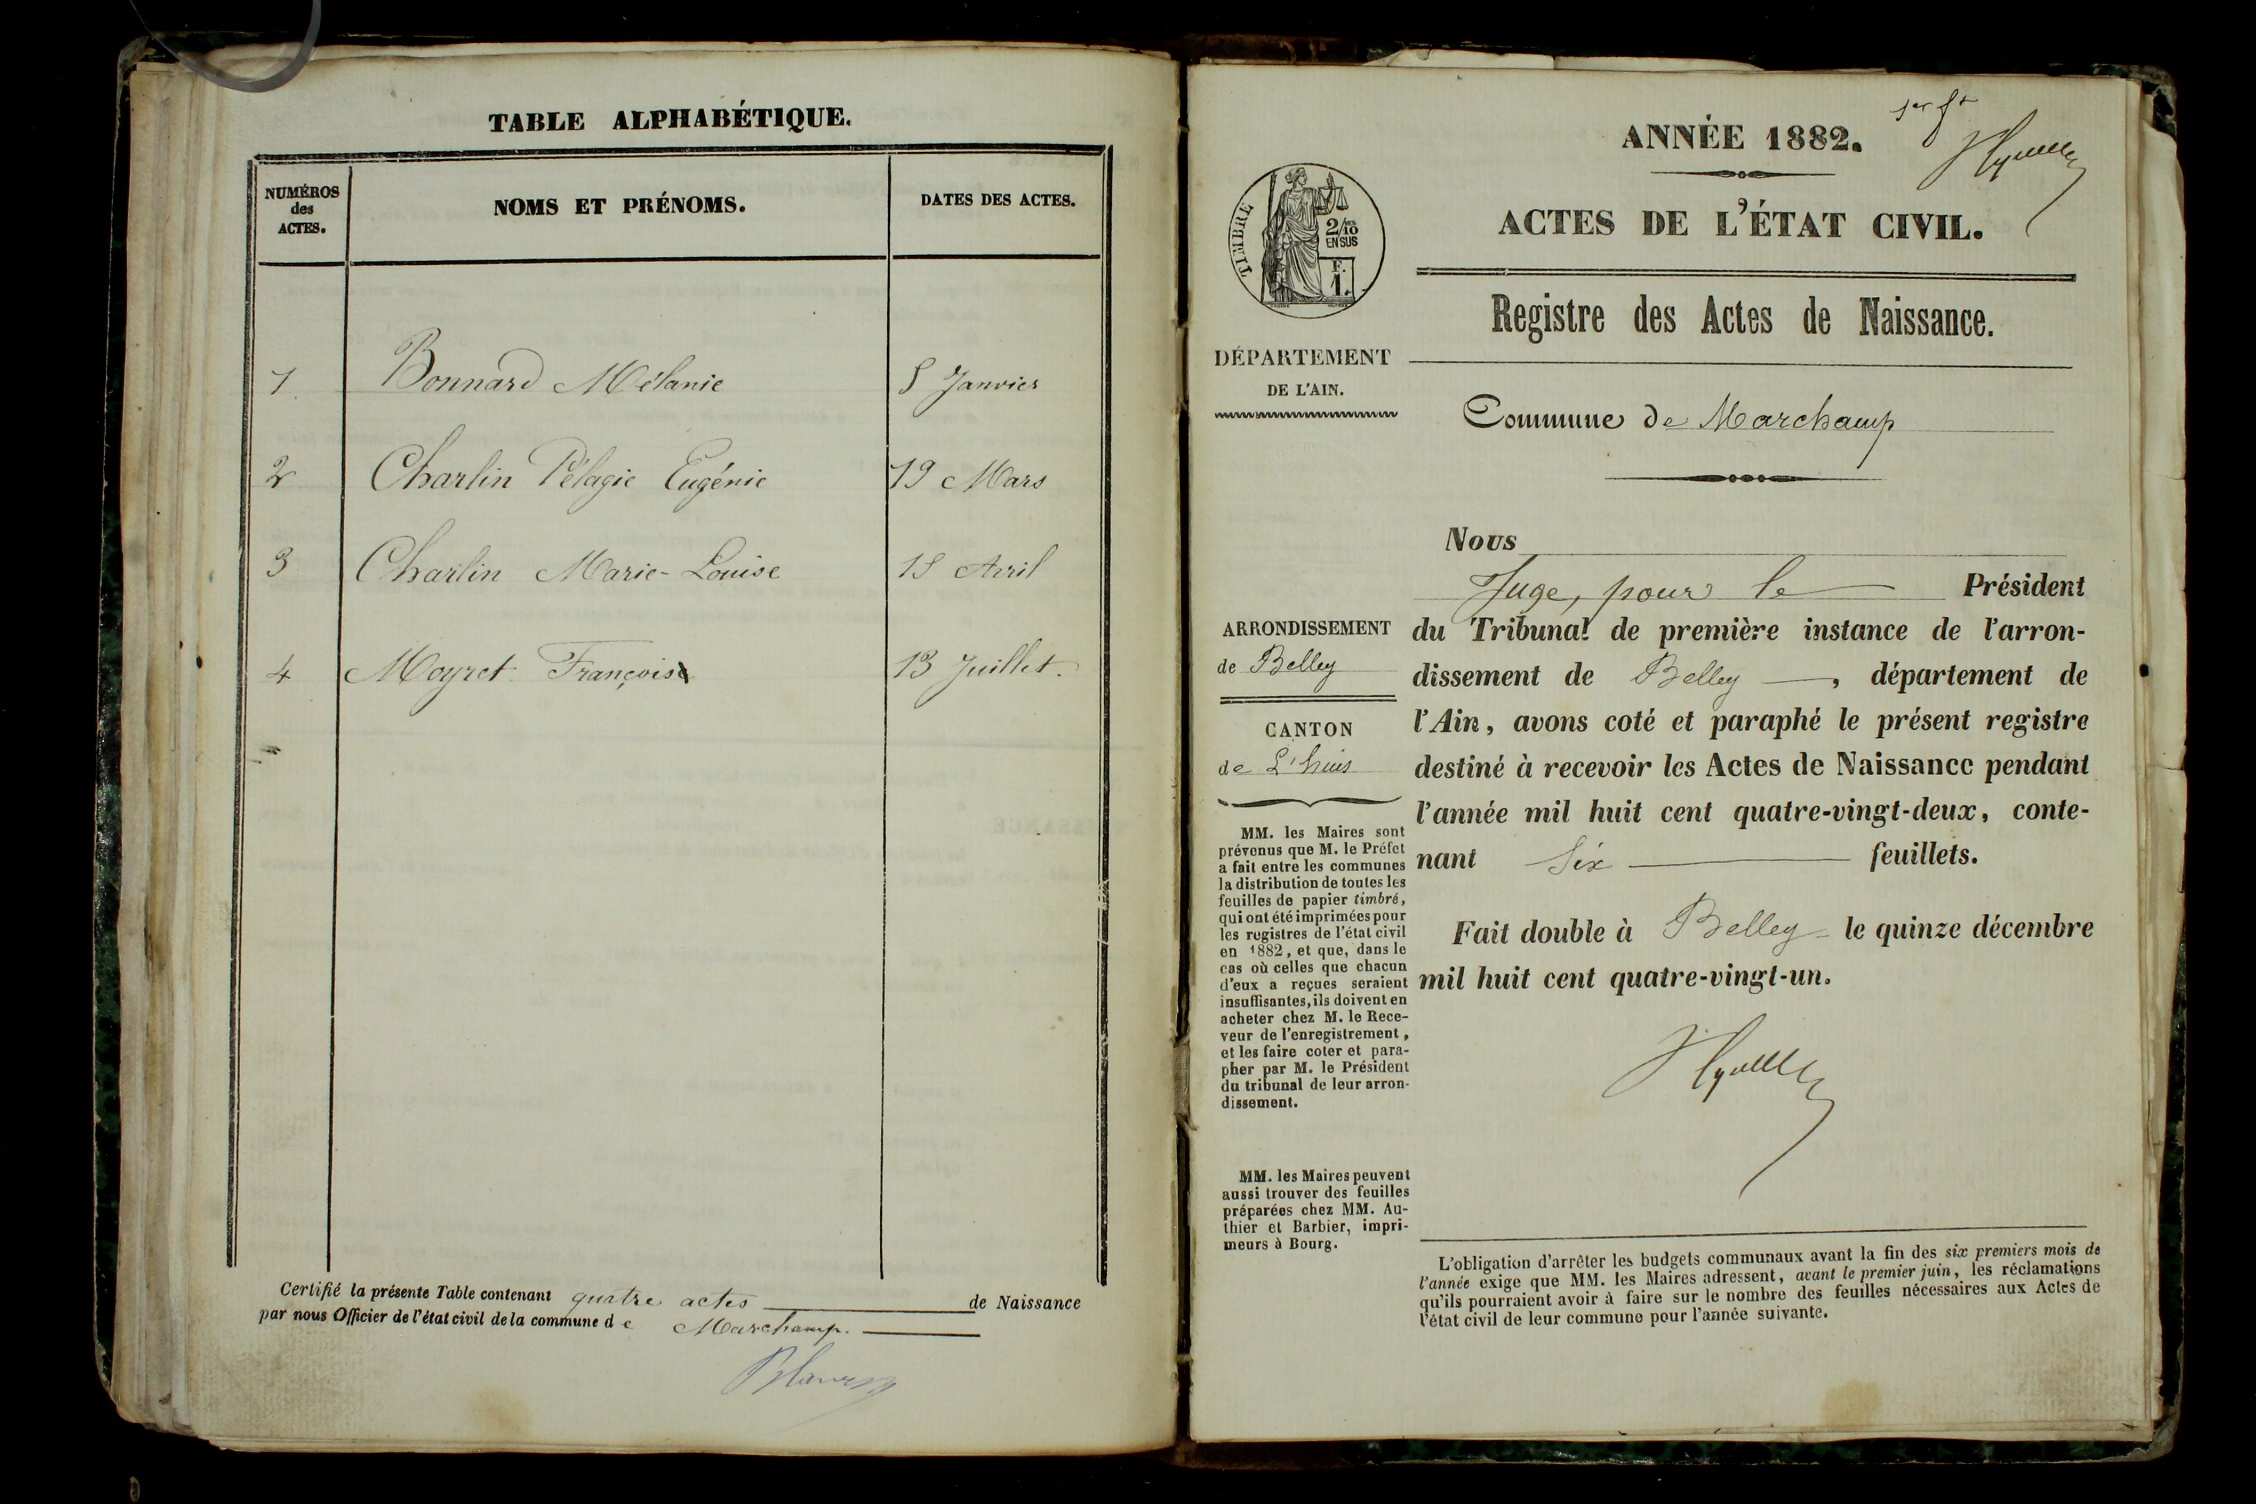 TABLE ALPHABÉTIQUE.
NUMÉROS
des
ACTES.
NOMS ET PRÉNOMS.
DATES DES ACTES.
1 Bonnard Mélanie 5 Janvier
2 Charlin Pélagie Eugénie 19 Mars
3 Charlin Marie-Louise 15 Avril
4 Meyret François 13 Juillet.
Certifié la présente Table contenant quatre actes de Naissance
par nous Officier de l'état civil de la commune de Marchamp.
1er ft
ANNÉE 1882.
ACTES DE L'ÉTAT CIVIL.
TIMBRE
2/10
EN SUS
F.
1.
Registre des Actes de Naissance.
DÉPARTEMENT
DE L'AIN.
Commune de Marchamp
ARRONDISSEMENT
de Belley
CANTON
de L'huis
MM. les Maires sont
prévenus que M. le Préfet
a fait entre les communes
la distribution de toutes les
feuilles de papier timbré,
qui ont été imprimées pour
les registres de l'état civil
en 1882, et que, dans le
cas où celles que chacun
d'eux a reçues seraient
insuffisantes, ils doivent en
acheter chez M. le Rece-
veur de l'enregistrement,
et les faire coter et para-
pher par M. le Président
du tribunal de leur arron-
dissement.
MM. les Maires peuvent
aussi trouver des feuilles
préparées chez MM. Au-
thier et Barbier, impri-
meurs à Bourg.
Nous
Juge, pour le Président
du Tribunal de première instance de l'arron-
dissement de Belley, département de
l'Ain, avons coté et paraphé le présent registre
destiné à recevoir les Actes de Naissance pendant
l'année mil huit cent quatre-vingt-deux, conte-
nant six feuillets.
Fait double à Belley le quinze décembre
mil huit cent quatre-vingt-un.
L'obligation d'arrêter les budgets communaux avant la fin des six premiers mois de
l'année exige que MM. les Maires adressent, avant le premier juin, les réclamations
qu'ils pourraient avoir à faire sur le nombre des feuilles nécessaires aux Actes de
l'état civil de leur commune pour l'année suivante.